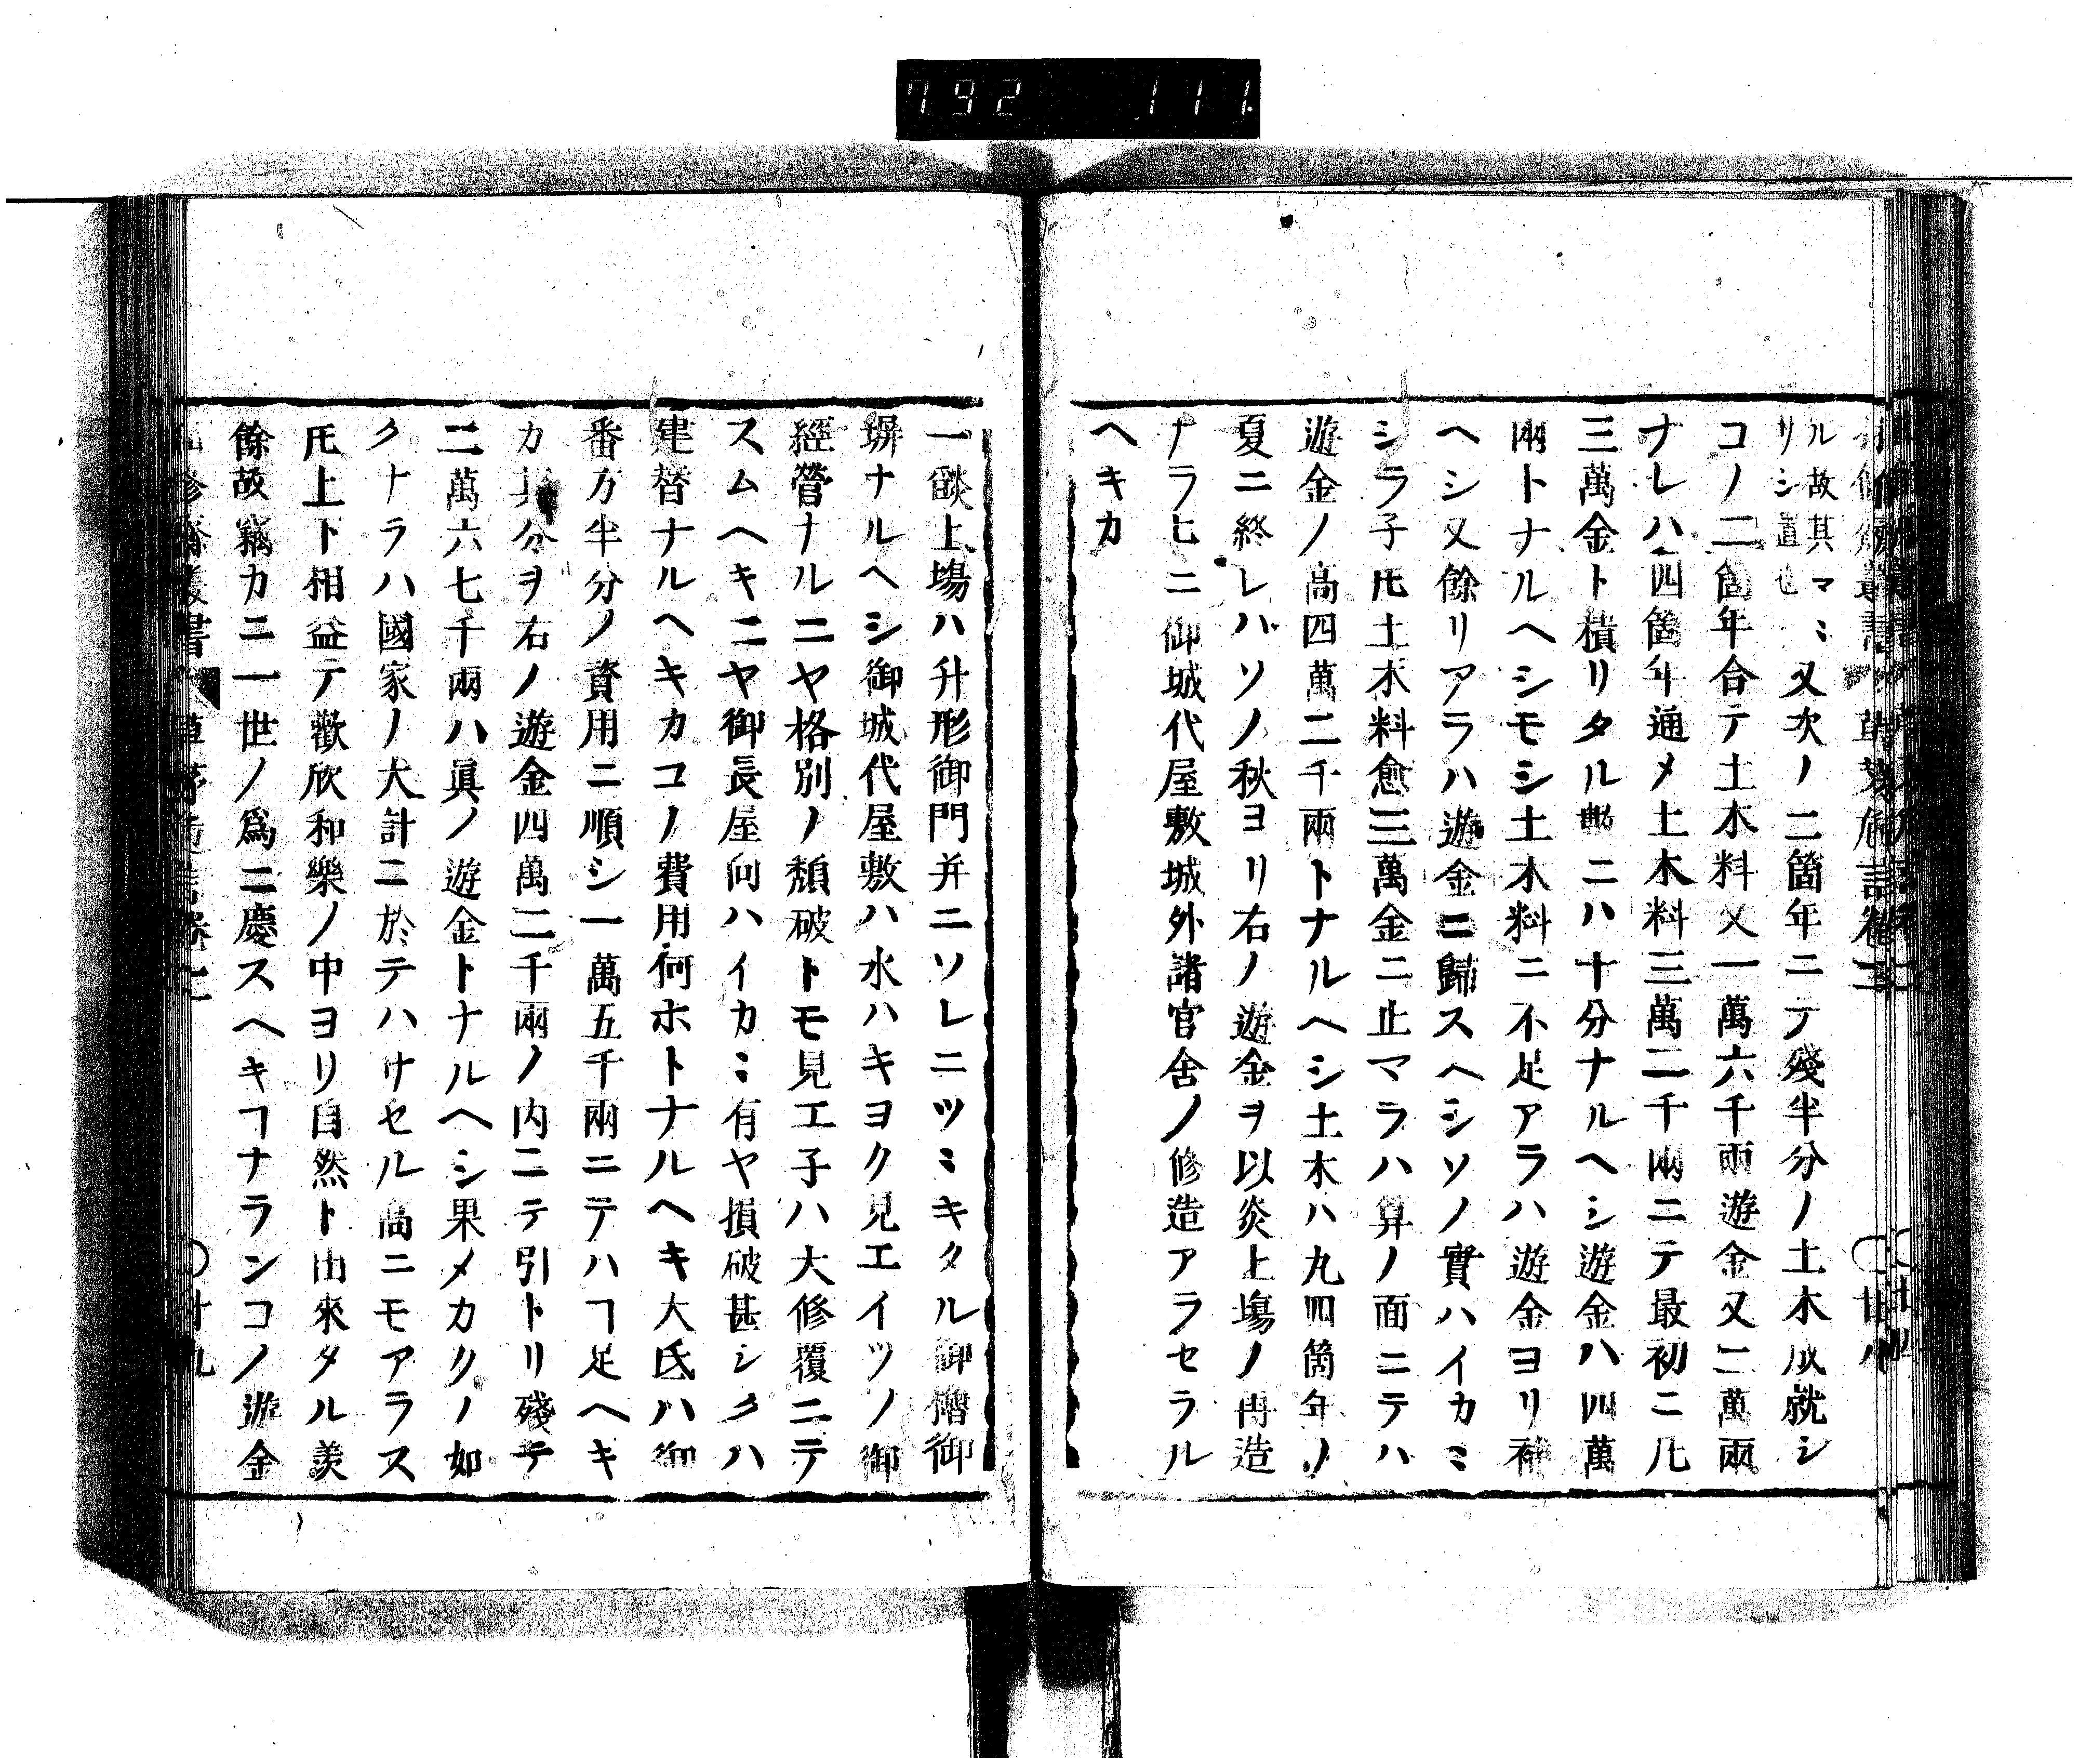 792 111
ル故其マヽ
リシ道也
又次ノ二箇年ニテ殘半分ノ土木成就シ
コノ二箇年合テ土木料又一萬六千兩遊金又二萬兩
ナレハ四箇年通メ土木料三萬二千兩ニテ最初ニ凡
三萬金ト積リタル數ニハ十分ナルヘシ遊金ハ四萬
兩トナルヘシモシ土木料ニ不足アラハ遊金ヨリ補
ヘシ又餘リアラハ遊金ニ歸スヘシソノ實ハイカミ
シラ子𪜈土木料愈三萬金ニ止マラハ算ノ面ニテハ
遊金ノ高四萬二千兩トナルヘシ土木ハ九四箇年ノ
夏ニ終レハソノ秋ヨリ右ノ遊金ヲ以炎上場ノ再造
ナラヒニ御城代屋敷城外諸官舍ノ修造アラセラル
ヘキカ
一燄上場ハ升形御門并ニソレニツヽキタル御櫓御
塀ナルヘシ御城代屋敷ハ水ハキヨク見エイツノ御
經營ナルニヤ格別ノ頽破トモ見エ子ハ大修覆ニテ
スムヘキニヤ御長屋向ハイカヽ有ヤ損破甚シクハ
建替ナルヘキカコノ費用何ホトナルヘキ大氐ハ御
番方半分ノ資用ニ順シ一萬五千兩ニテハヿ足ヘキ
カ其分ヲ右ノ遊金四萬二千兩ノ内ニテ引トリ殘テ
二萬六七千兩ハ眞ノ遊金トナルヘシ果メカクノ如
クナラハ國家ノ大計ニ於テハサセル高ニモアラス
𪜈上下相益テ歡欣和樂ノ中ヨリ自然ト由來タル羨
餘故竊カニ一世ノ爲ニ慶スヘキヿナランコノ遊金